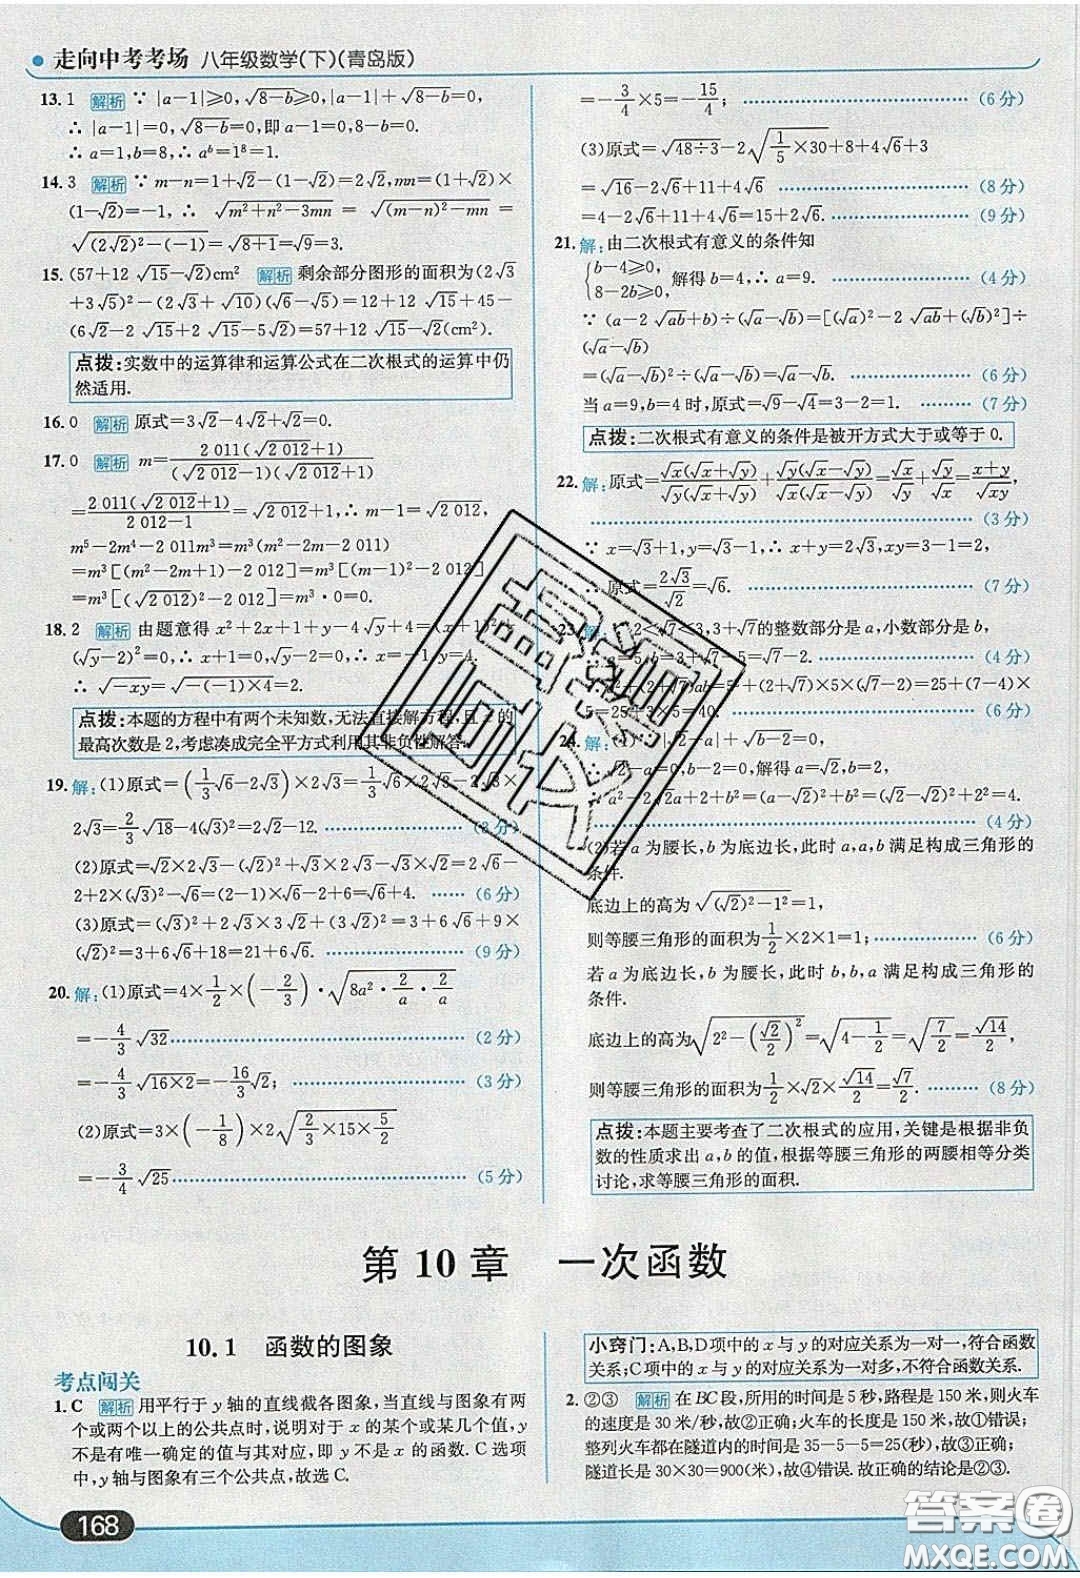 走向中考考场 八年级数学(下)(青岛版)
13.1 解析 ∵ |a-1|≥0,√(8-b)≥0,|a-1|+√(8-b)=0,
∴ |a-1|=0,√(8-b)=0,即a-1=0,8-b=0,
∴ a=1,b=8,∴ aᵇ=1⁸=1.
14.3 解析 ∵ m-n=1+√2-(1-√2)=2√2,mn=(1+√2)×
(1-√2)=-1, ∴ √(m²+n²-3mn) = √((m-n)²-mn) =
√((2√2)²-(-1))=√(8+1)=√9=3.
15.(57+12√15-√2)cm² 解析 剩余部分图形的面积为(2√3
+3√5)²-(2√3+√10)(√6-√5)=12+12√15+45-
(6√2-2√15+2√15-5√2)=57+12√15-√2(cm²).
点拨:实数中的运算律和运算公式在二次根式的运算中仍
然适用.
16.0 解析 原式=3√2-4√2+√2=0.
17.0 解析 m=2 011(√2 012+1)/((√2 012-1)(√2 012+1))
=2 011(√2 012+1)/(2 012-1)=√2 012+1,∴ m-1=√2 012,
m⁵-2m⁴-2 011m³=m³(m²-2m-2 011)
=m³[(m²-2m+1)-2 012]=m³[(m-1)²-2 012]
=m³[(√2 012)²-2 012]=m³·0=0.
18.2 解析 由题意得 x²+2x+1+y-4√y+4=(x+1)²+
(√y-2)²=0,∴ x+1=0,√y-2=0,∴ x=-1,y=4.
∴ √(-xy)=√(-(-1)×4)=2.
点拨:本题的方程中有两个未知数,无法直接解方程,且 x 的
最高次数是2,考虑凑成完全平方式利用其非负性解答.
19.解:(1)原式=(1/3√6-2√3)×2√3=1/3√6×2√3-2√3×
2√3=2/3√18-4(√3)²=2√2-12. (3分)
(2)原式=√2×2√3-(√2)²+√3×2√3-√3×√2=2√6-
2+2×(√3)²-√6=(2-1)√6-2+6=√6+4. (6分)
(3)原式=(√3)²+2√3×3√2+(3√2)²=3+6√6+9×
(√2)²=3+6√6+18=21+6√6. (9分)
20.解:(1)原式=4×1/2×(-2/3)·√(8a²·2/a·2/a)
=-4/3√32 (2分)
=-4/3√(16×2)=-16/3√2; (3分)
(2)原式=3×(-1/8)×2√(2/3×15×5/2)
=-3/4√25 (5分)
=-3/4×5=-15/4; (6分)
(3)原式=√(48÷3)-2√(1/5×30)+8+4√6+3
=√16-2√6+11+4√6 (8分)
=4-2√6+11+4√6=15+2√6. (9分)
21.解:由二次根式有意义的条件知
{b-4≥0, 8-2b≥0 解得b=4,∴ a=9. (4分)
∵ (a-2√ab+b)÷(√a-√b)=[(√a)²-2√ab+(√b)²]÷
(√a-√b)
=(√a-√b)²÷(√a-√b)=√a-√b. (6分)
当a=9,b=4时,原式=√9-√4=3-2=1. (7分)
点拨:二次根式有意义的条件是被开方式大于或等于0.
22.解:原式=√x(√x+√y)/(√y(√x+√y))+√y(√x-√y)/(√x(√x-√y))=√x/√y+√y/√x=(x+y)/√xy,
(3分)
∵ x=√3+1,y=√3-1,∴ x+y=2√3,xy=3-1=2,
∴ 原式=2√3/√2=√6. (7分)
23.解:∵2<√7<3,3+√7的整数部分是a,小数部分是b,
∴ a=5,b=3+√7-5=√7-2. (4分)
∴ +(2+√7)ab=5²+(2+√7)×5×(√7-2)=25+(7-4)×
5=25+3×5=40. (6分)
24.解:(1)∵ |√2-a|+√(b-2)=0,
∴ √2-a=0,b-2=0,解得a=√2,b=2,
∴ a²-2√2a+2+b²=(a-√2)²+b²=0+2²=4.
(4分)
(2)若a为腰长,b为底边长,此时a,a,b满足构成三角形的
条件.
底边上的高为√((√2)²-1²)=1,
则等腰三角形的面积为1/2×2×1=1; (6分)
若a为底边长,b为腰长,此时b,b,a满足构成三角形的
条件.
底边上的高为√(2²-(√2/2)²)=√(4-1/2)=√(7/2)=√14/2,
则等腰三角形的面积为1/2×√2×√14/2=√7/2. (8分)
点拨:本题主要考查了二次根式的应用,关键是根据非负
数的性质求出a,b的值,根据等腰三角形的两腰相等分类
讨论,求等腰三角形的面积.
第10章 一次函数
10.1 函数的图象
考点闯关
1.C 解析 用平行于y轴的直线截各图象,当直线与图象有两
个或两个以上的公共点时,说明对于x的某个或某几个值,y
不是有唯一确定的值与其对应,即y不是x的函数.C选项
中,y轴与图象有三个公共点,故选C.
小窍门:A,B,D项中的x与y的对应关系为一对一,符合函数
关系;C项中的x与y的对应关系为一对多,不符合函数关系.
2.②③ 解析 在BC段,所用的时间是5秒,路程是150米,则火车
的速度是30米/秒,故②正确;火车的长度是150米,故①错误;
整列火车都在隧道内的时间是35-5-5=25(秒),故③正确;
隧道长是30×30=900(米),故④错误.故正确的结论是②③.
168
答案圈
MXQE.COM